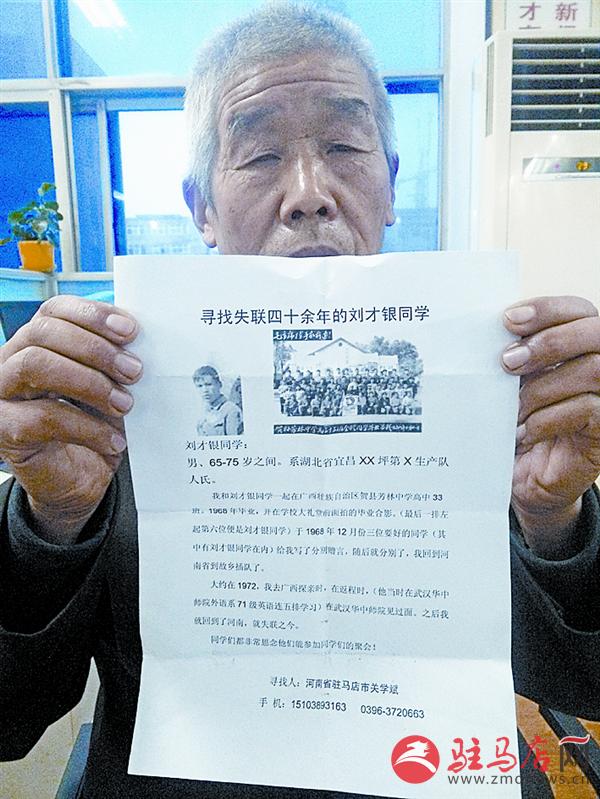 新
才
寻找失联四十余年的刘才银同学
刘才银同学:
男、65-75 岁之间。系湖北省宜昌 XX 坪第 X 生产队
人氏。
我和刘才银同学一起在广西壮族自治区贺县芳林中学高中 33
班。1968 年毕业,并在学校大礼堂前面拍的毕业合影。(最后一排左
起第六位便是刘才银同学)于 1968 年 12 月份三位要好的同学(其
中有刘才银同学在内)给我写了分别赠言,随后就分别了,我回到河
南省到故乡插队了。
大约在 1972,我去广西探亲时,在返程时,(他当时在武汉华中
师院外语系 71 级英语连五排学习)在武汉华中师院见过面。之后我
就回到了河南,就失联之今。
同学们都非常思念他们能参加同学们的聚会!
寻找人:河南省驻马店市关学斌
手 机:15103893163 0396-3720663
驻马店网
www.zmdnews.cn